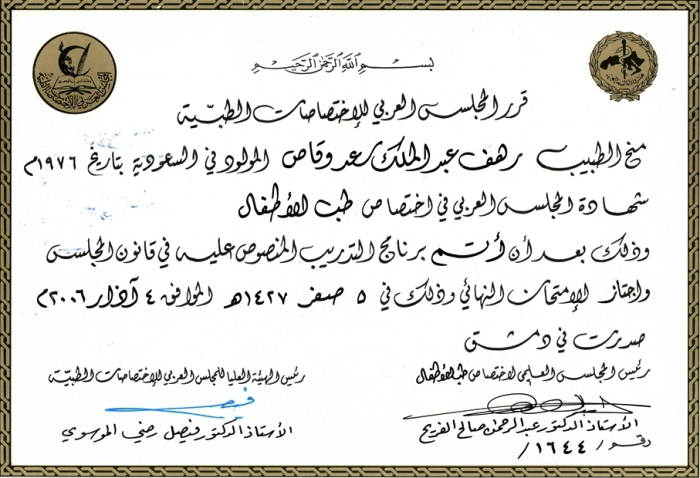 بسم الله الرحمن الرحيم
قرر المجلس العربي للإختصاصات الطبّية
منح الطبيب رهف عبد الملك سعد وقاص المولود في السعودية بتاريخ ١٩٧٦م
شهادة المجلس العربي في اختصاص طب الأطفال
وذلك بعد أن أتم برنامج التدريب المنصوص عليه في قانون المجلس
واجتاز الإمتحان النهائي وذلك في ٥ صفر ١٤٢٧هـ الموافق ٤ آذار ٢٠٠٦م
صدرت في دمشق
رئيس المجلس العلمي لاختصاص طب الأطفال
الأستاذ الدكتور عبد الرحمن صالح الفريح
رقم / ١٦٤٤ /
رئيس الهيئة العليا للمجلس العربي للإختصاصات الطبيّة
الأستاذ الدكتور فيصل رضي الموسوي